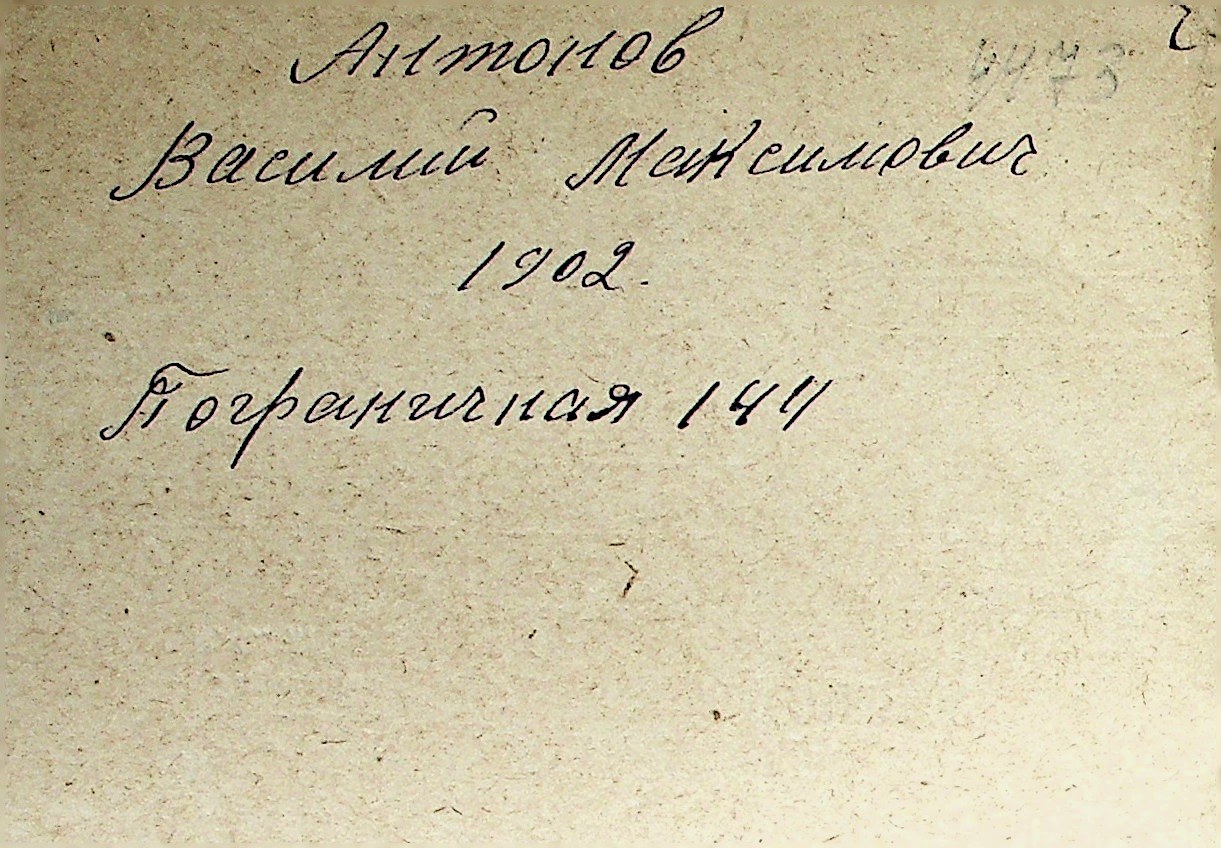 Антонов
Василий Максимович
1902.
Пограничная 144